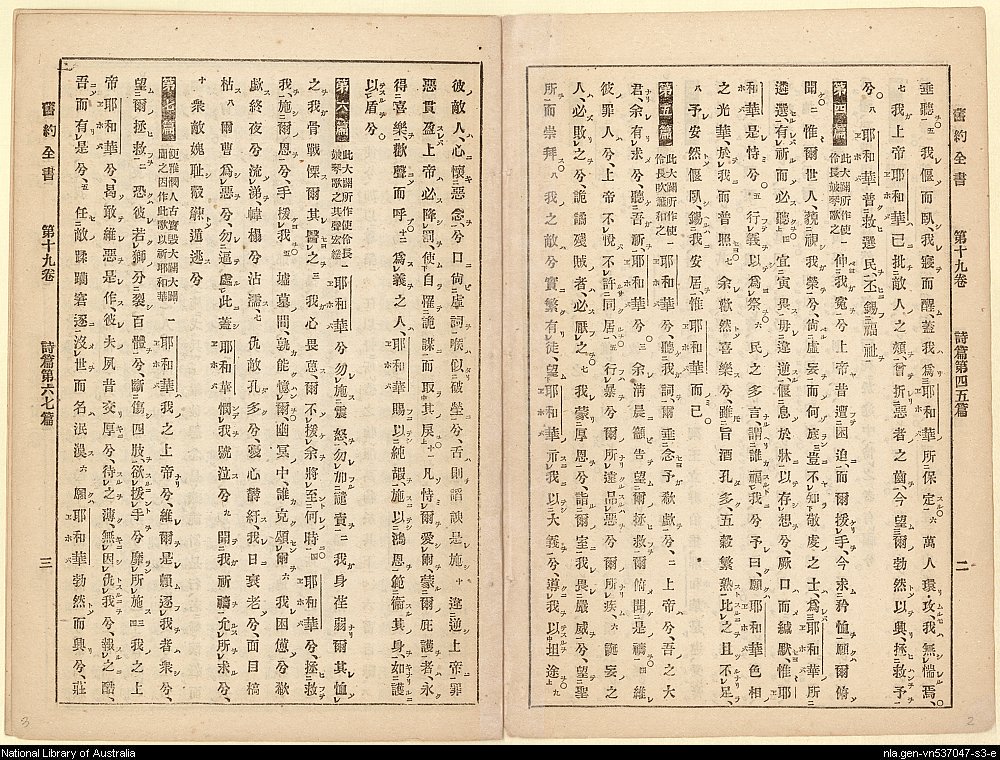 舊約全書　第十九卷　詩篇第四五篇　二
垂聽、五我偃而臥、我寢而醒、蓋我爲耶和華所保定、六萬人環攻我無惴焉、
七我上帝耶和華已批敵人之頰、曾折惡者之齒、今望爾勃然以興、拯救予
兮、八耶和華普救選民、丕錫福祉
第四篇 此大闢所作使伶長鼓琴歌之 一伸我寃兮上帝、昔遭困迫、而爾援手、今求矜恤、願爾俯
聞、二惟爾世人、藐視我榮兮、尙虛妄而何底、三豈不知敬虔之士、爲耶和華所
遴選、有祈而必聽、四宜寅畏、毋違逆、偃息於牀以存想兮、厥口而緘默、惟耶
和華是恃兮、五行義以爲祭、六民之多言、謂誰福我兮、予曰、願耶和華色相
之光華、於我而普照、七余歡然喜樂兮、雖旨酒孔多、五穀繁熟、比之且不足、
八予安然偃臥、錫我安居、惟耶和華而已、
第五篇 此大闢所作使伶長吹簫和之 一耶和華兮、聽我詞、爾垂念予欷歔兮、二上帝兮、吾之大
君、余有求兮、聽吾祈、耶和華兮、三余淸晨籲告、望爾拯救、爾俯聞是禱、四維
彼罪人兮、上帝不悅、不許同居、五行暴兮、爾所遠、品惡兮、爾所疾、六誕妄之
人、必敗之兮、詭譎殘賊者必厭之、七我蒙厚恩兮、詣爾室、我畏嚴威兮、望聖
所而崇拜、八我之敵兮實繁有徒、望耶和華示我以大義兮、導我以坦途、九
彼敵人、心懷惡念兮、口尙虛詞、喉似破塋兮、舌則謟諛是施、十違逆上帝、罪
惡貫盈、上帝必降罰、使自罹詭謀、而取其戾、十一凡恃爾愛爾、蒙爾庇護者、永
得喜樂、歡聲而呼、十二爲義之人、耶和華賜以純嘏、施以鴻恩、範衞其身、如護
以盾兮、
第六篇 此大闢所作使伶長鼓琴歌之其聲宏經 一耶和華兮、勿施震怒、勿加譴責、二我身荏弱、爾其恤
之、我骨戰慄、爾其醫之、三我心畏葸、爾不援余、將至何時、四耶和華兮、拯救
我、施爾恩兮、手援我、五墟墓間、孰能憶爾、幽冥中、誰克頌爾、六我困憊兮、欷
歔終夜兮流涕、幃榻兮沾濡、七仇敵孔多兮、憂心欝紆、我日衰老兮、面目槁
枯、八爾曹爲惡兮、勿逼處此、蓋耶和華憫我號泣兮、九開我祈禱、允所求兮、
十衆敵媿恥觳觫、遁逃兮
第七篇 便雅憫人古實毀大闢大闢聞之因作此歌以祈耶和華 一耶和華我之上帝兮、維爾是賴、逐我者衆兮、
望爾拯救、二恐彼若獅兮、裂百體兮、斷傷四肢、欲援手兮、靡所施、三我之上
帝耶和華兮、曷敢維惡是作、彼夫夙昔交厚兮、待之薄、無因仇我兮、報之酷、
吾而有是兮、五任敵蹂躪窘逐、沒世而名泯滅、六願耶和華勃然而興兮、莊
舊約全書　第十九卷　詩篇第六七篇　三
3
2
National Library of Australia
nla.gen-vn537047-s3-e